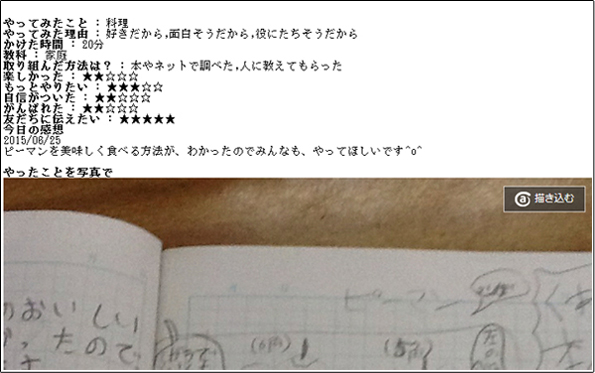 やってみたこと : 料理
やってみた理由 : 好きだから,面白そうだから,役にたちそうだから
かけた時間 : 20分
教科 : 家庭
取り組んだ方法は? : 本やネットで調べた,人に教えてもらった
楽しかった : ★★☆☆☆
もっとやりたい : ★★★☆☆
自信がついた : ★★☆☆☆
がんばれた : ★★☆☆☆
友だちに伝えたい : ★★★★★
今日の感想
2015/06/25
ピーマンを美味しく食べる方法が、わかったのでみんなも、やってほしいです^o^
やったことを写真で
a 描き込む
ピーマン
おいしい
たので